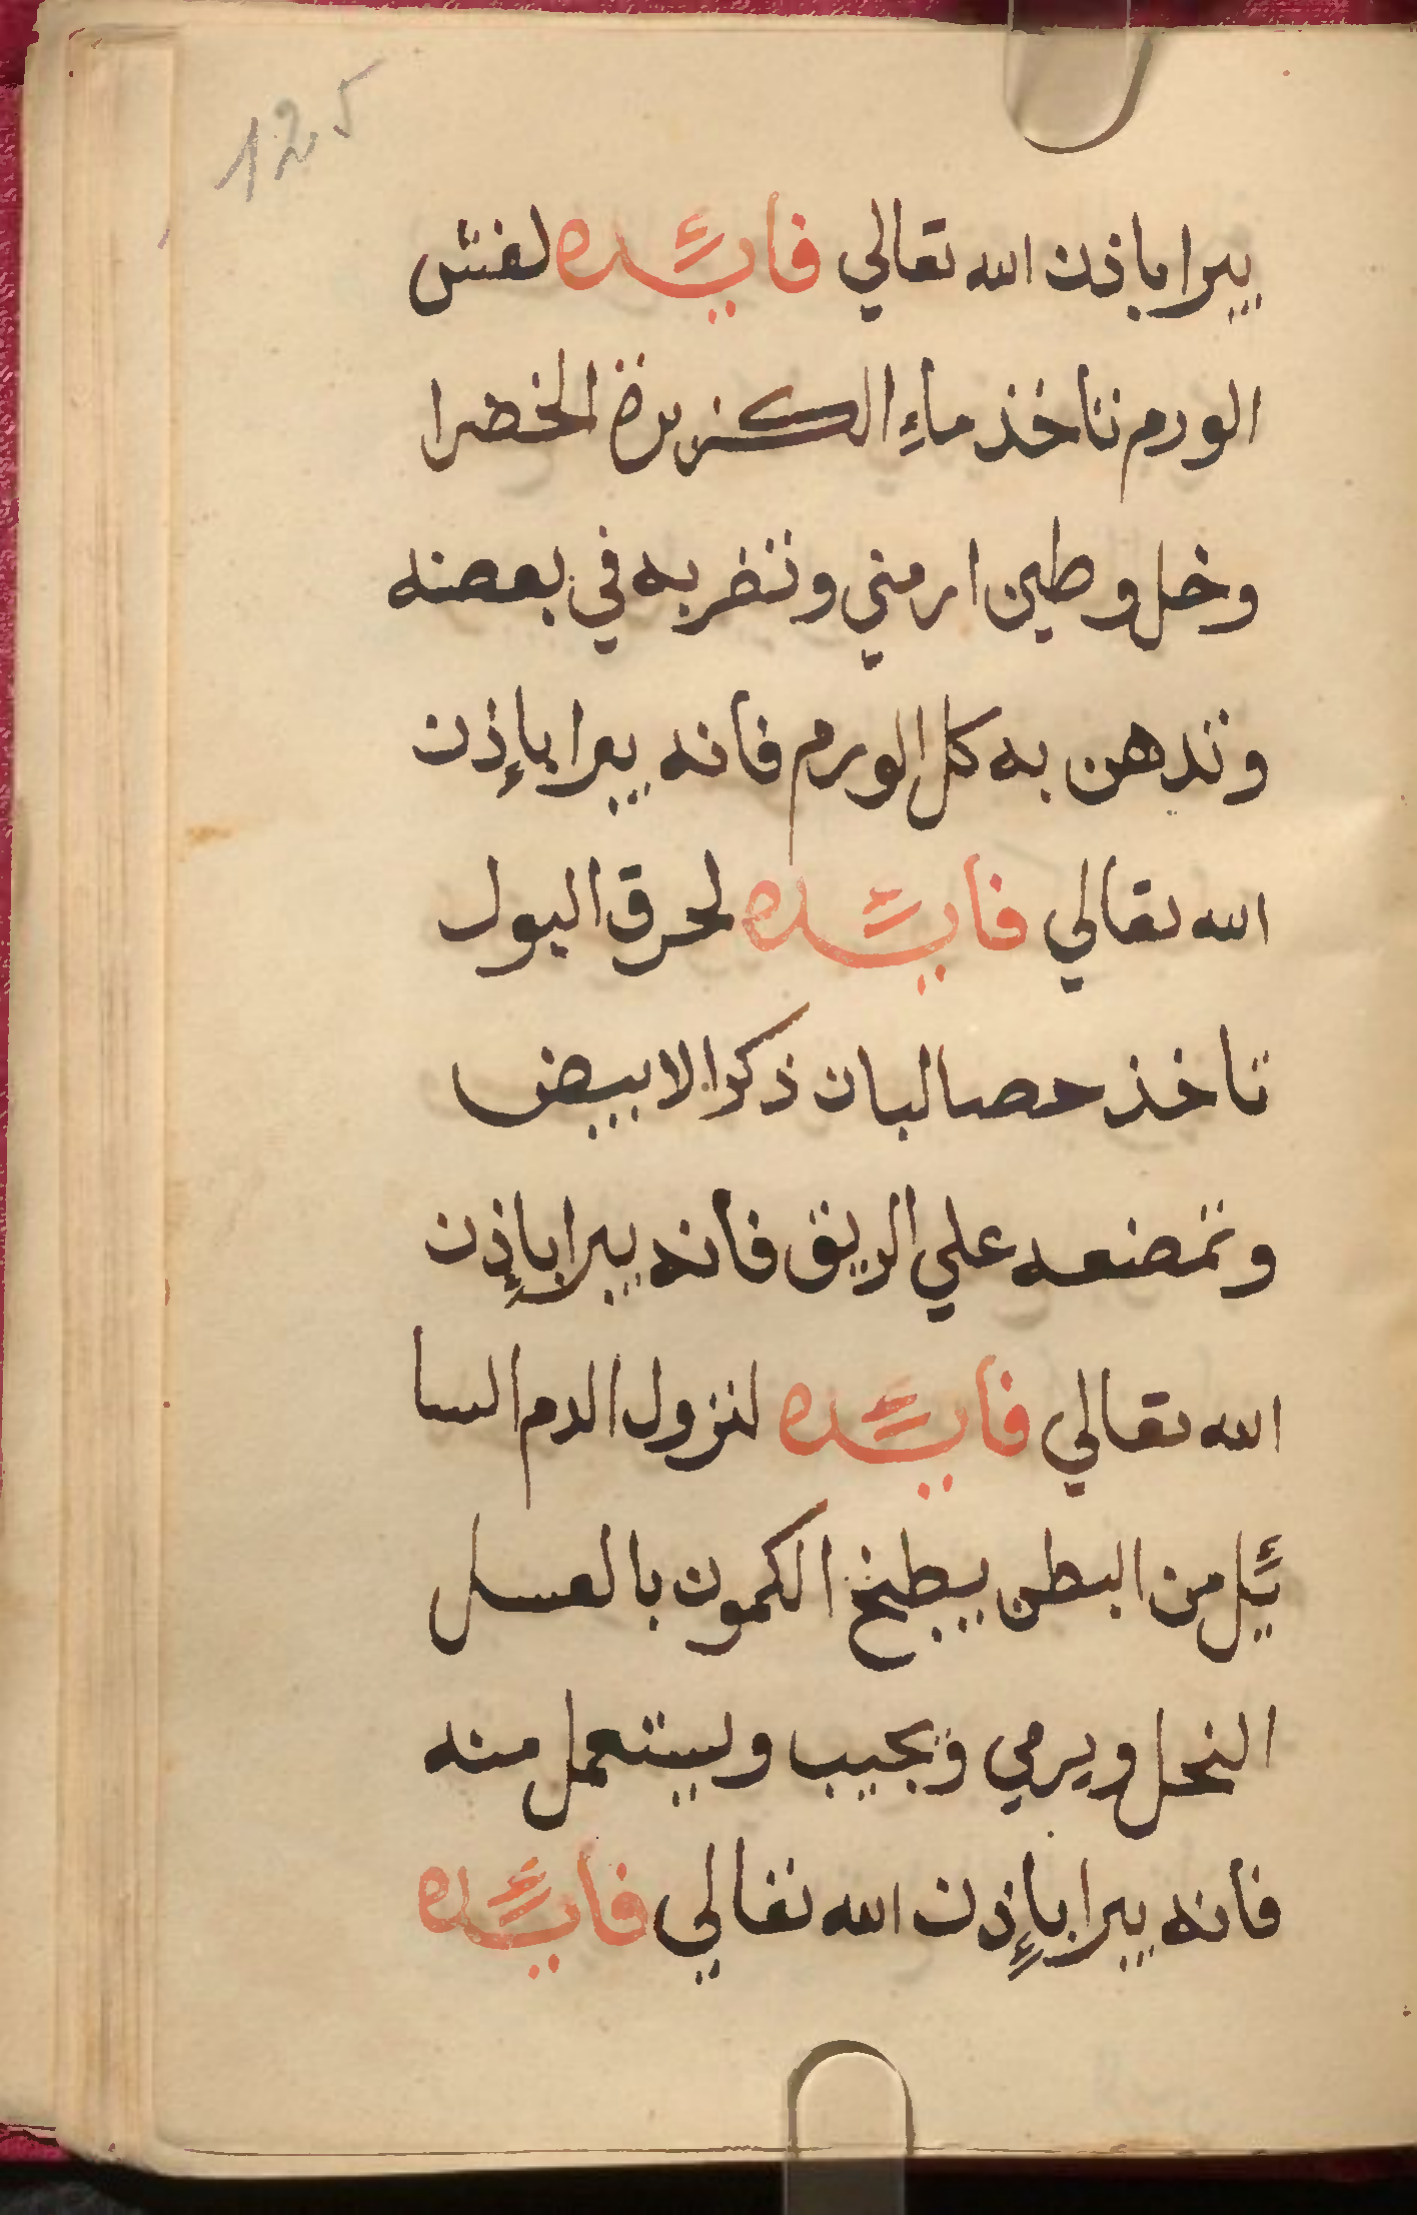 125
يبرا باذن الله تعالي فائده لفش
الورم تاخذ ماءِ الكزبرة الخضرا
وخل وطين ارمني وتضربه في بعضه
وتدهن به كل الورم فانه يبرا بإذن
الله تعالي فائده لحرق البول
تاخذ حصا لبان ذكر الابيض
وتمضعه علي الريق فانه يبرا بإذن
الله تعالي فائده لنزول الدم السا
ئل من البطن يبطخ الكمون بالعسل
النحل ويرمي ويجيب ويستعمل منه
فانه يبرا بإذن الله تعالي فائده